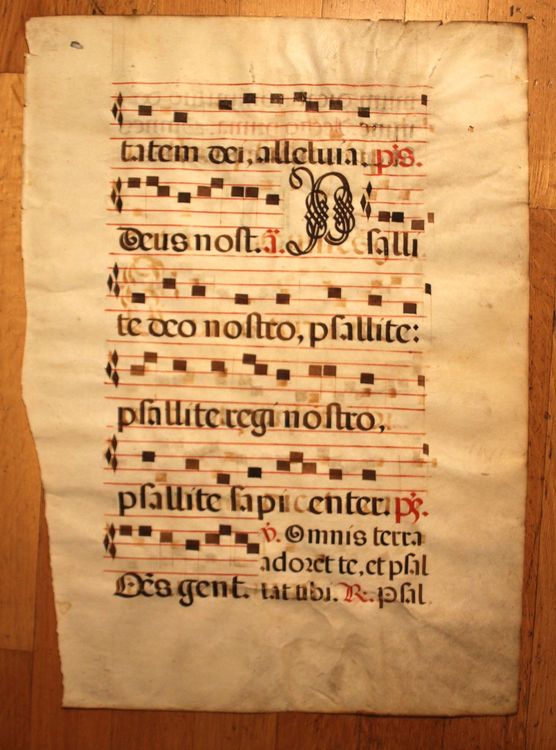 tatem dei, alleluia. p̄s.
Deus nost. ā. Psalli
te deo nostro, psallite:
psallite regi nostro,
psallite sapienter. ps.
Oēs gent. ℣. Omnis terra
adoret te, et psal
lat tibi. R. Psal